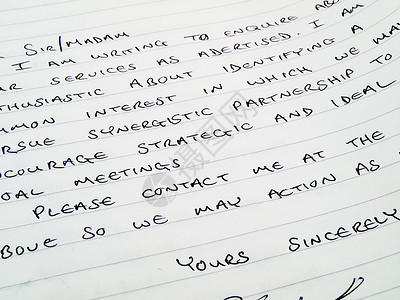 SIR/MADAM
I AM WRITING TO ENQUIRE
SERVICES AS ADERTISED. I AM
ABOUT IDENTIFYING A
INTEREST IN WHICH WE MAY
SYNERGISTIC PARTNERSHIP TO
STRATEGIC AND IDEAL
MEETINGS
PLEASE CONTACT ME AT THE
SO WE MAY ACTION AS
YOURS SINCERELY